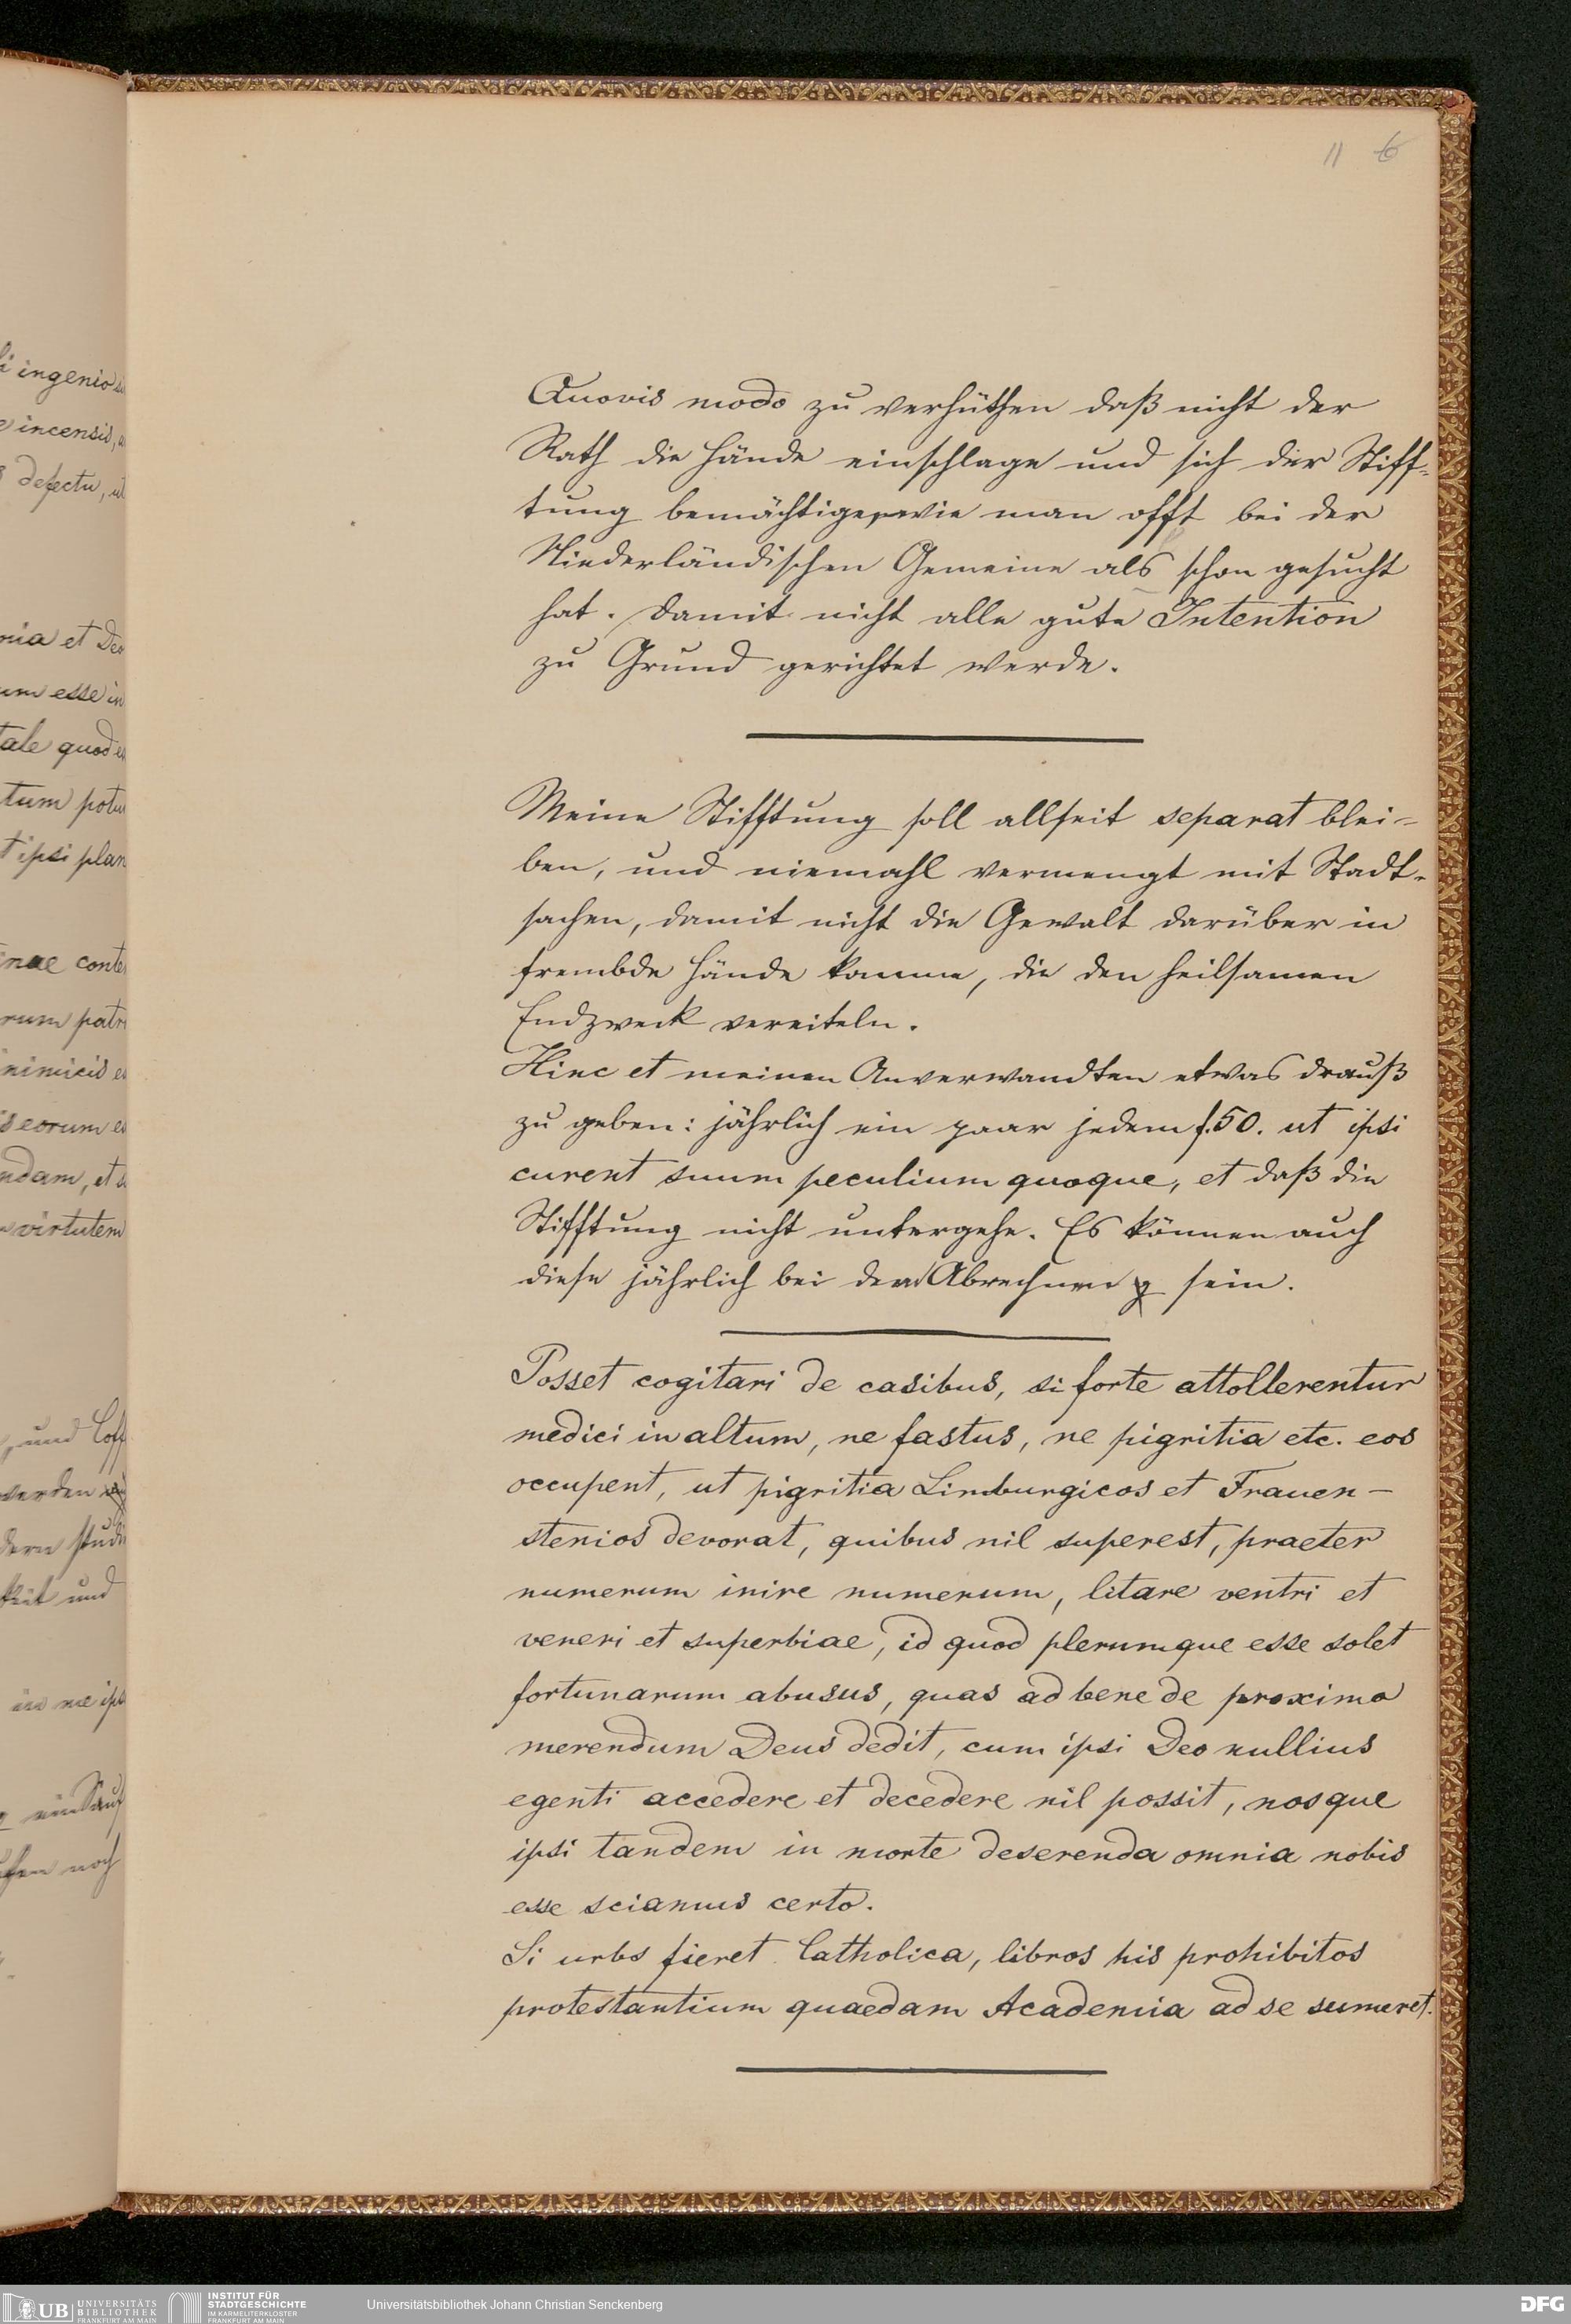 11 6
Quovis modo zu verhüthen daß nicht der
Rath die Hände einschlage und sich der Stiff-
tung bemächtige, wie man offt bei der
Niederländischen Gemeine als schon gesucht
hat. Damit nicht alle gute Intention
zu Grund gerichtet werde.
Meine Stifftung soll allseit separat blei-
ben, und niemahl vermengt mit Stadt-
sachen, damit nicht die Gewalt darüber in
frembde Hände komme, die den heilsamen
Endzweck vereiteln.
Hinc et meinen Anverwandten etwas drauß
zu geben: jährlich ein paar jedem f. 50. ut ipsi
curent suum peculium quoque, et daß die
Stifftung nicht untergehe. Es können auch
diese jährlich bei dem Abrechnen sein.
Posset cogitari de casibus, si forte attollerentur
medici in altum, ne fastus, ne pigritia etc. eos
occupent, ut pigritia Limburgicos et Frauen-
stenios devorat, quibus nil superest, praeter
numerum inire numerum, litare ventri et
veneri et superbiae, id quod plerumque esse solet
fortunarum abusus, quas ad bene de proximo
merendum Deus dedit, cum ipsi Deo nullius
egenti accedere et decedere nil possit, nosque
ipsi tandem in morte deserenda omnia nobis
esse sciamus certo.
Si urbs fieret Catholica, libros his prohibitos
protestantium quaedam Academia ad se sumeret.
i ingenio
incensis,
defectu, ut
et Deo
um esse in
tale quod
tum
ipsi
nae
rum
nimicis
eorum
ndam, et
virtutem
und
werden
und
in me
noch
UB UNIVERSITÄTS
BIBLIOTHEK
FRANKFURT AM MAIN
INSTITUT FÜR
STADTGESCHICHTE
IM KARMELITERKLOSTER
FRANKFURT AM MAIN
Universitätsbibliothek Johann Christian Senckenberg
DFG